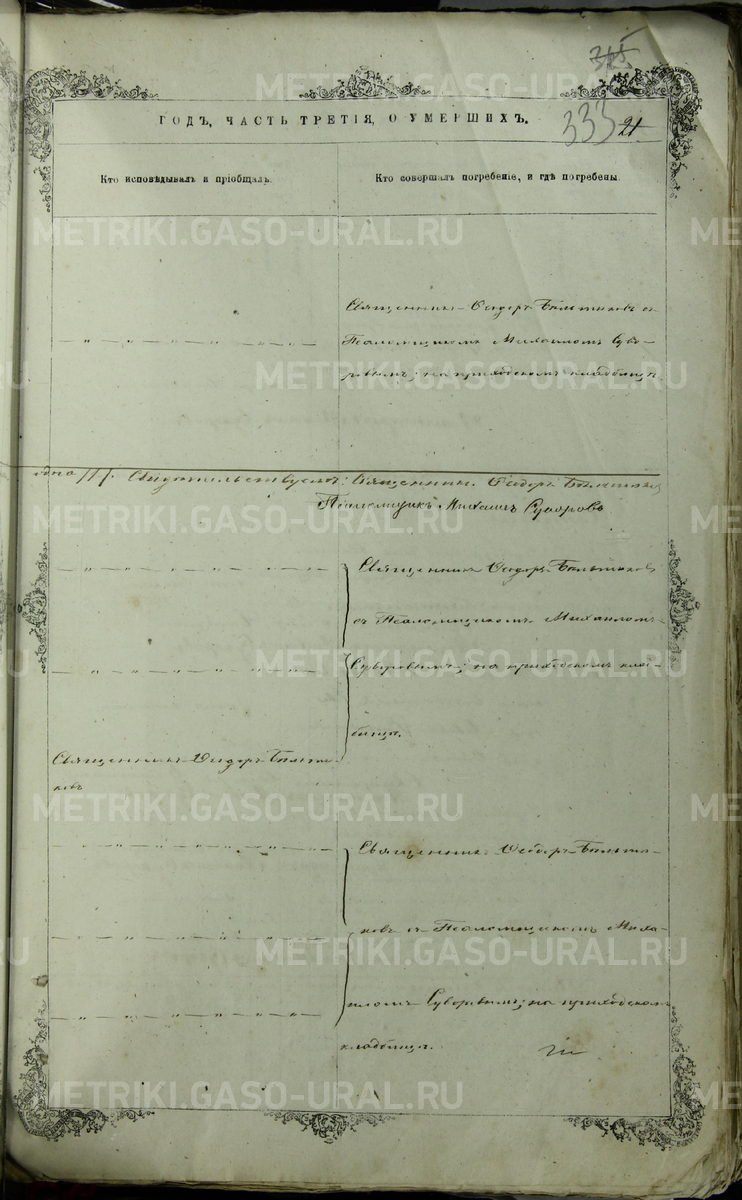 345
333 21
ГОДЪ, ЧАСТЬ ТРЕТІЯ, О УМЕРШИХЪ.
Кто исповѣдывалъ и пріобщалъ.
Кто совершалъ погребеніе, и гдѣ погребены.
Священникъ Ѳедоръ Бѣльтиковъ съ
— „ — „ — „ — „ — „ — „ —
Псаломщикомъ Михаиломъ Суво-
ровымъ; на приходскомъ кладбищѣ.
Свидѣтельствуютъ: Священникъ Ѳедоръ Бѣльтиковъ
Псаломщикъ Михаилъ Суворовъ
— „ — „ — „ — „ — „ — „ —
Священникъ Ѳедоръ Бѣльтиковъ
съ Псаломщикомъ Михаиломъ
— „ — „ — „ — „ — „ — „ —
Суворовымъ; на приходскомъ клад-
бищѣ.
Священникъ Ѳедоръ Бѣльти-
ковъ
— „ — „ — „ — „ — „ — „ —
Священникъ Ѳедоръ Бѣльти-
— „ — „ — „ — „ — „ — „ —
ковъ съ Псаломщикомъ Миха-
— „ — „ — „ — „ — „ — „ —
иломъ Суворовымъ; на приходскомъ
кладбищѣ.
METRIKI.GASO-URAL.RU